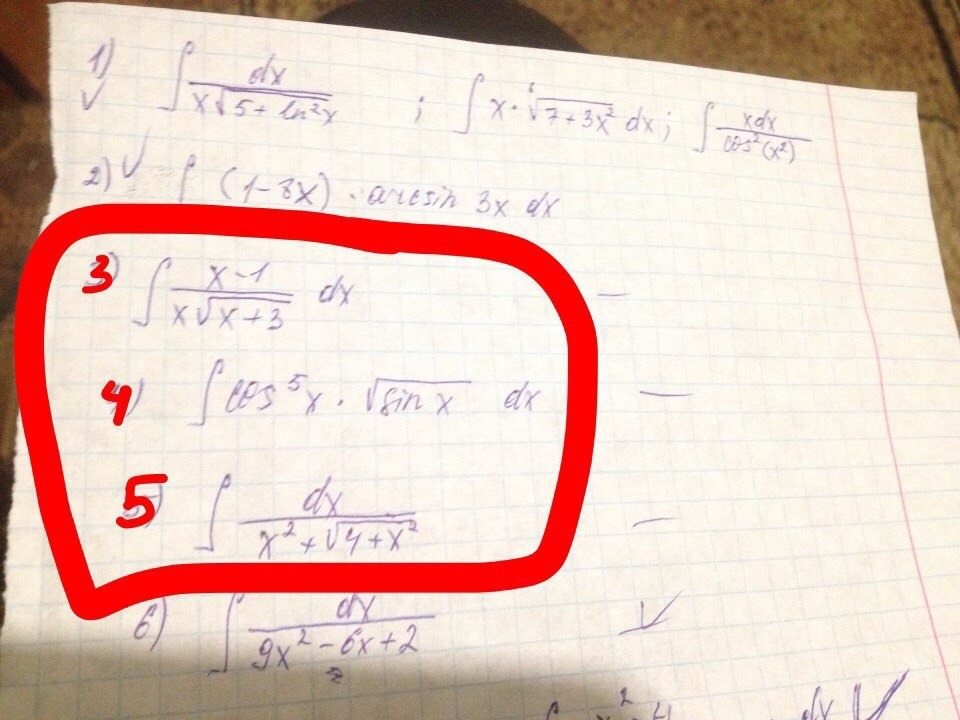 1) ∫ dx / (x√(5 + ln²x)) ; ∫ x · √(7+3x²) dx ; ∫ xdx / cos²(x²)
2) ∫ (1-8x) · arcsin 3x dx
3) ∫ (x-1) / (x√(x+3)) dx —
4) ∫ cos⁵x · √(sin x) dx —
5) ∫ dx / (x² + √(4+x²)) —
6) ∫ dx / (9x² - 6x + 2) ✓